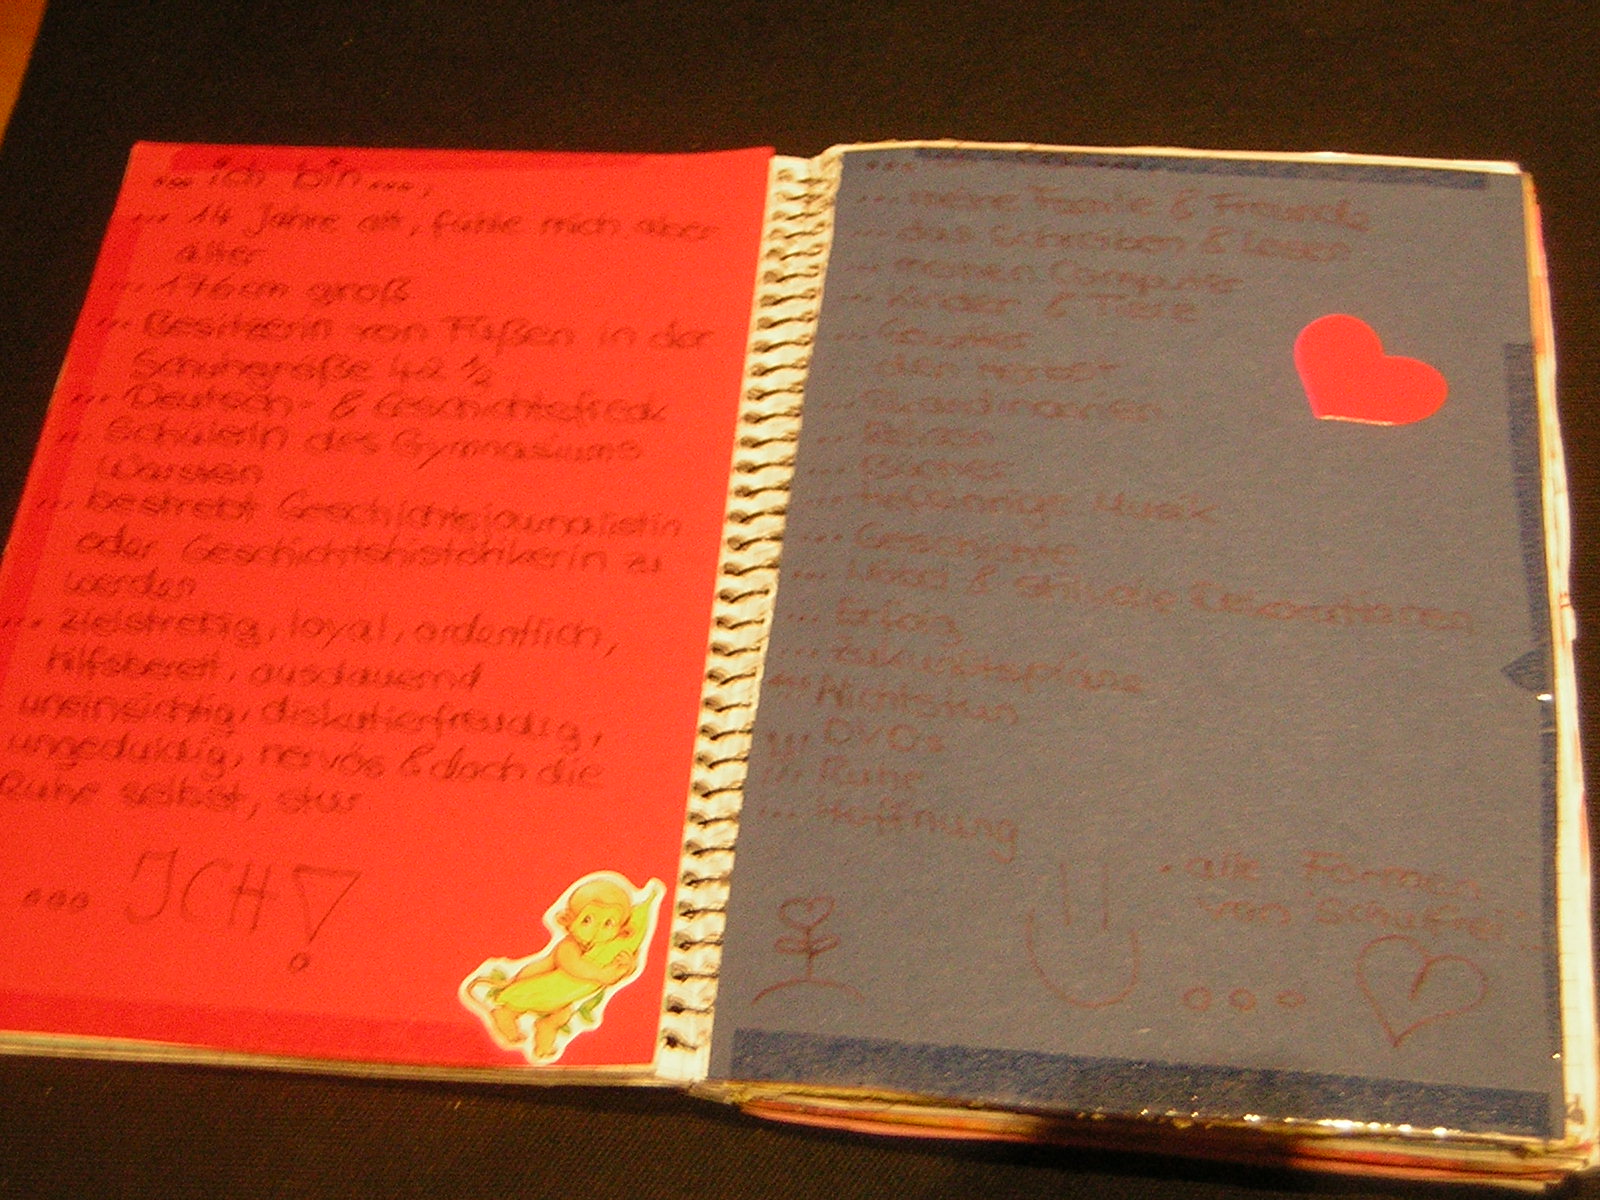 ... ich bin ...,
... 14 Jahre alt, fühle mich aber
älter
... 176cm groß
... Besitzerin von Füßen in der
Schuhgröße 42 ½
... Deutsch- & Geschichtsfreak
... Schülerin des Gymnasiums
Warstein
... bestrebt Geschichtsjournalistin
oder Geschichtshistorikerin zu
werden
... zielstrebig, loyal, ordentlich,
hilfsbereit, ausdauernd
uneinsichtig, diskutierfreudig,
ungeduldig, nervös & doch die
Ruhe selbst, stur
... ICH!
...
... meine Familie & Freunde
... das Schreiben & Lesen
... meinen Computer
... Kinder & Tiere
... Gewitter
... den Herbst
... Skandinavien
... Reisen
... Bücher
... Musik
... Geschichte
... & stilvolle Dekorationen
... Erfolg
... Zukunftspläne
... Nichtstun
... DVDs
... Ruhe
... Hoffnung
. alle Formen
von 'Schulfrei'